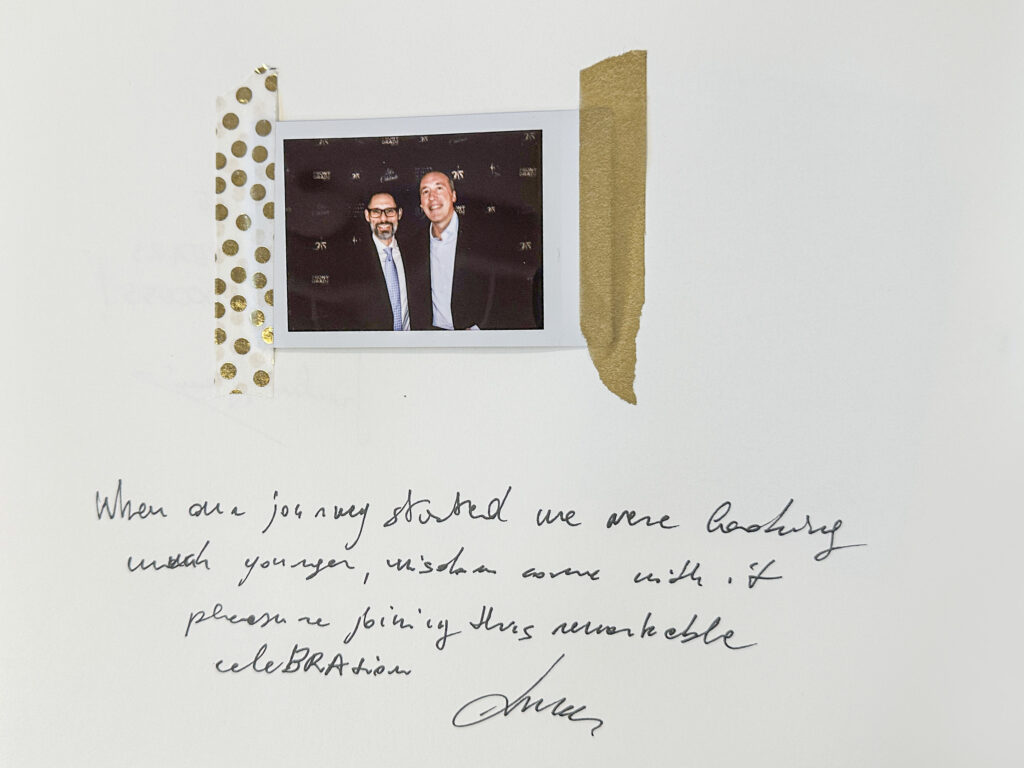 When our journey started we were looking
much younger, wisdom come with it
pleasure joining this remarkable
celeBRAtion